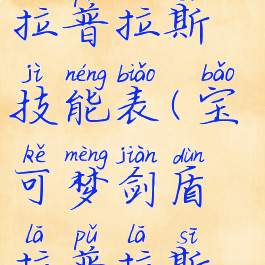 拉普拉斯
jì néng biǎo bǎo
技能表(宝
kě mèng jiàn dùn
可梦剑盾
lā pǔ lā sī
拉普拉斯